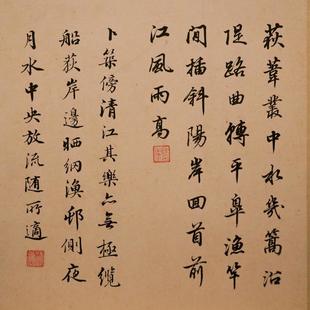 荻葦叢中水幾篙沿
隄路曲轉平皐漁竿
間插斜陽岸回首前
江風雨高
卜築傍清江其樂亦無極纜
船荻岸邊晒網漁邨側夜
月水中央放流隨所適